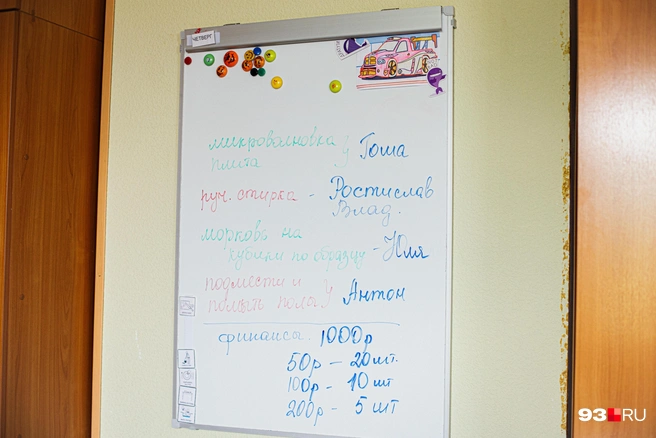 ЧЕТВЕРГ
микроволновка
плита у Гоша
руч. стирка - Ростислав
Влад.
морковь на
кубики по образцу - Юля
подмести и
помыть полы у Антон
финансы. 1000р
50р - 20шт.
100р - 10 шт
200р - 5 шт
93.RU